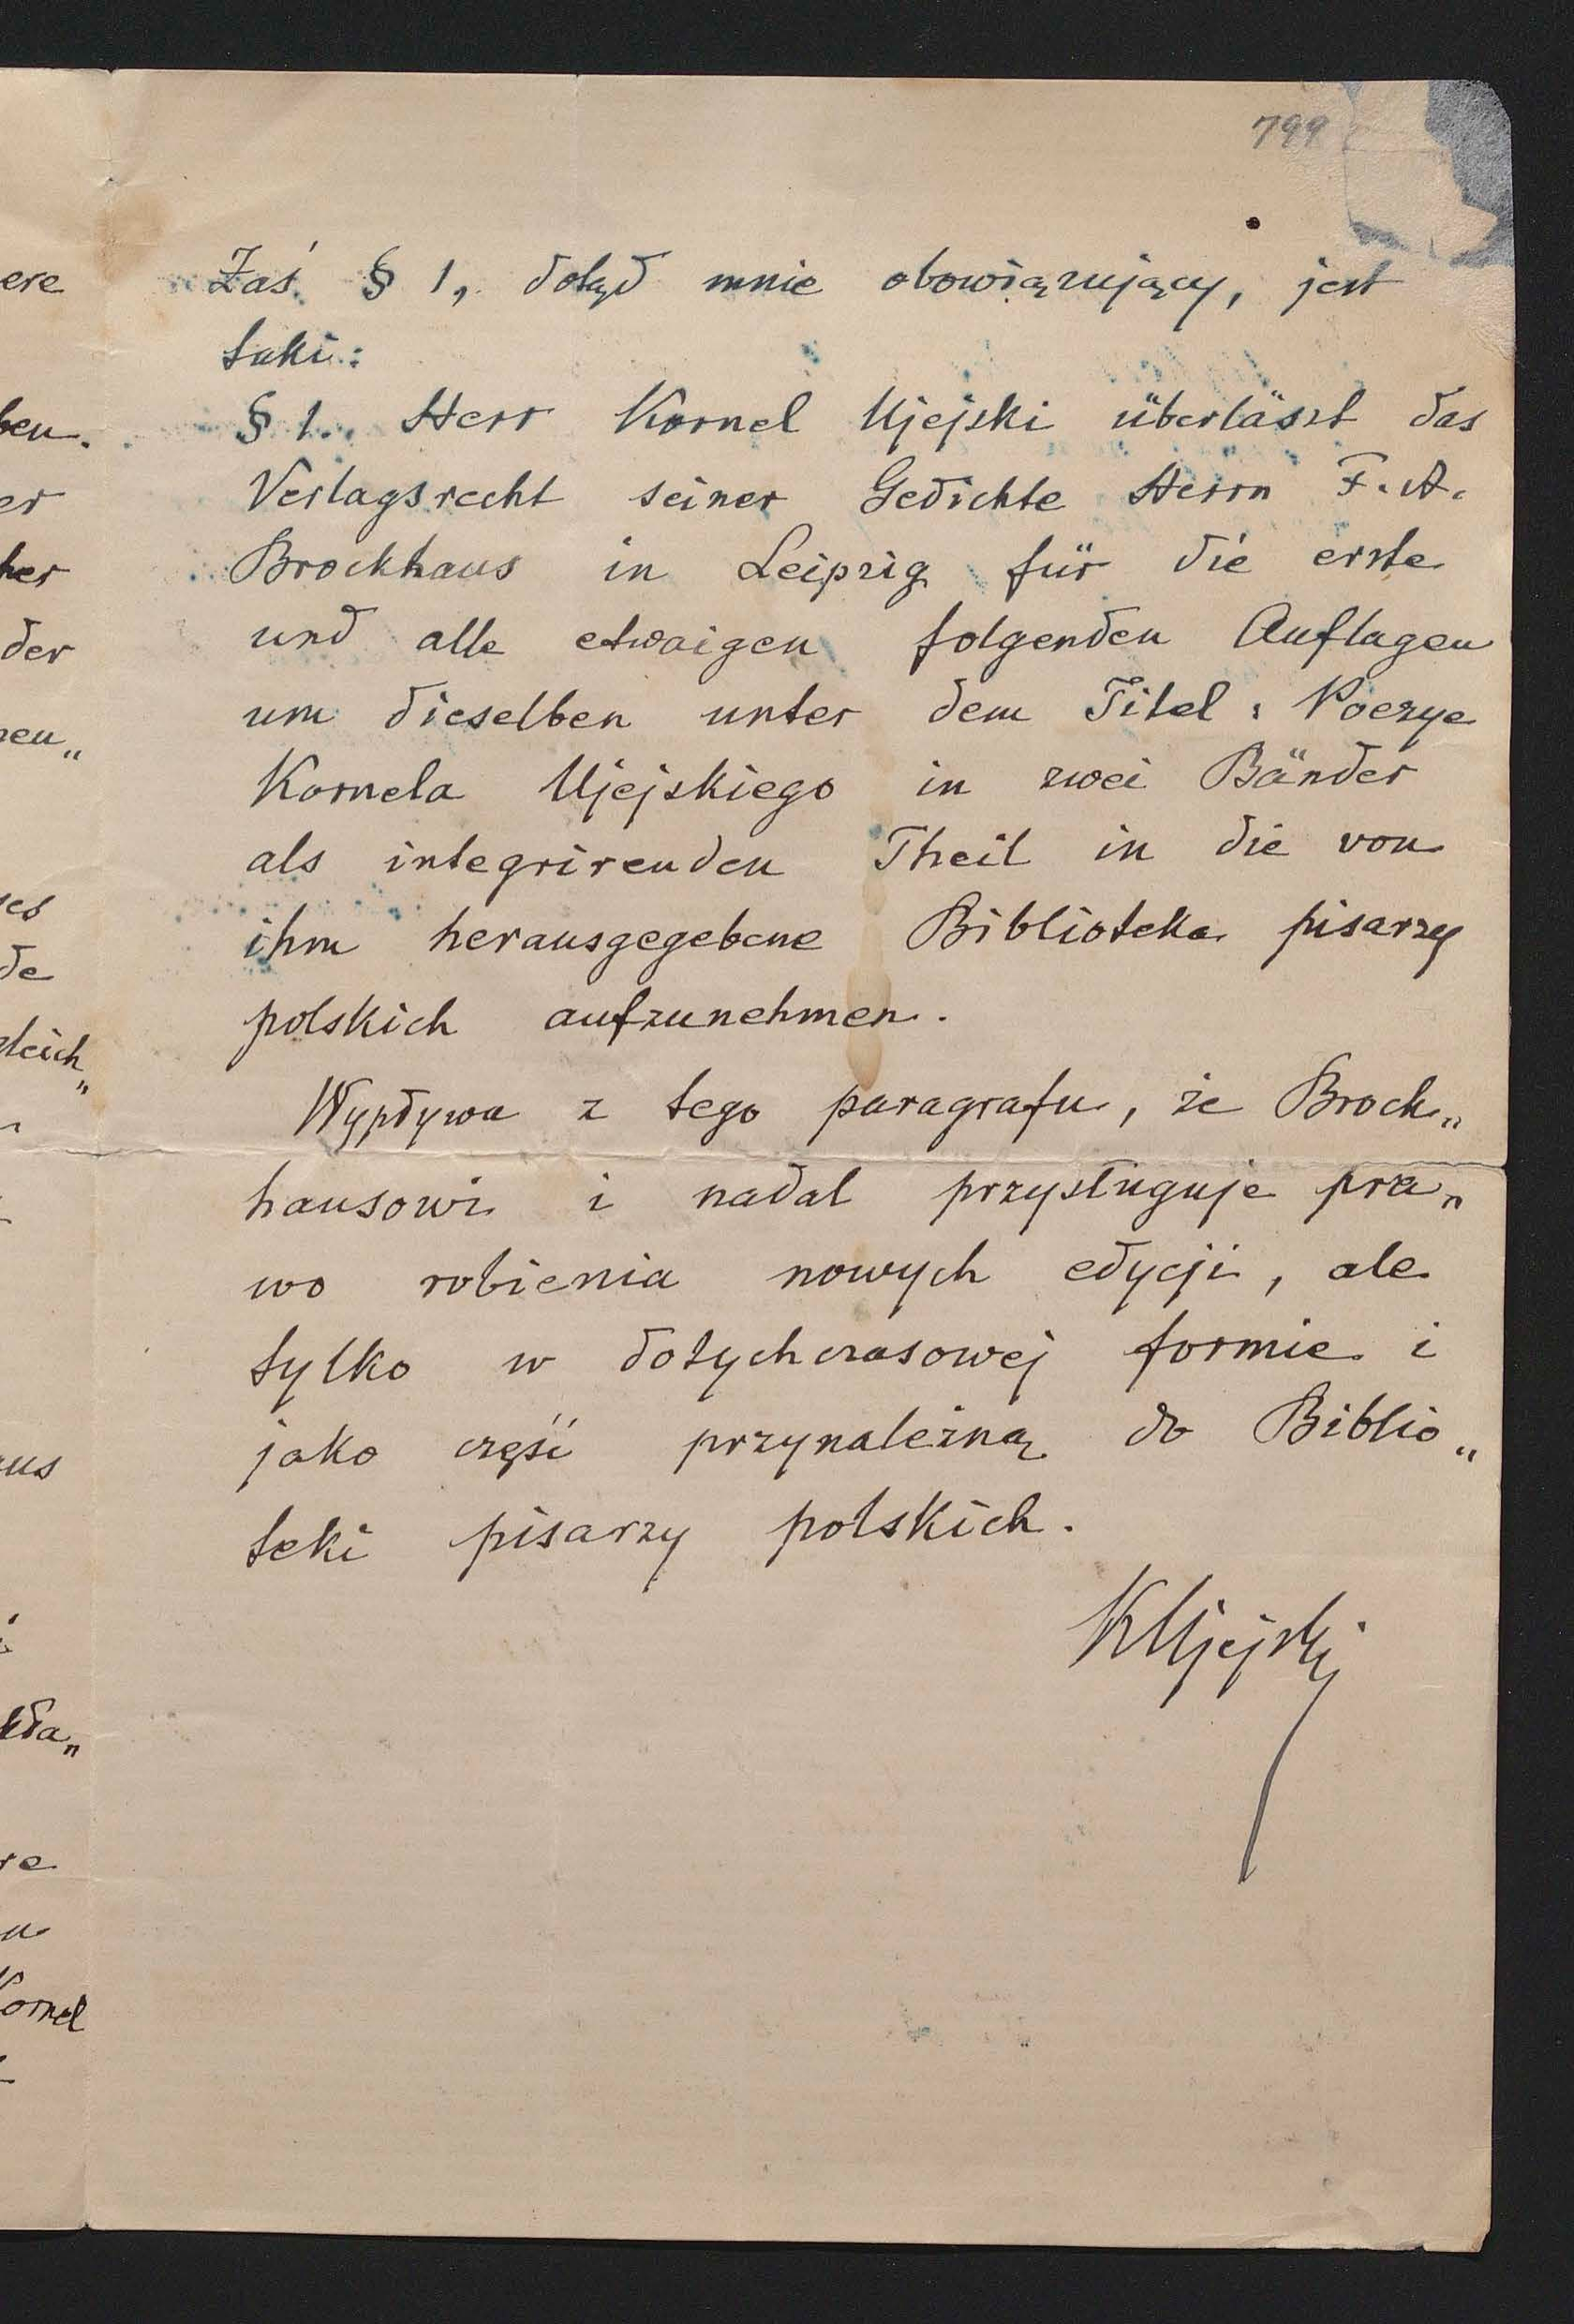 799
Zaś § 1, dotąd mnie obowiązujący, jest
taki:
§ 1. Herr Kornel Ujejski überlässt das
Verlagsrecht seiner Gedichte Herrn F. A.
Brockhaus in Leipzig für die erste
und alle etwaigen folgenden Auflagen
um dieselben unter dem Titel: Poezye
Kornela Ujejskiego in zwei Bänder
als integrirenden Theil in die von
ihm herausgegebene Biblioteka pisarzy
polskich aufzunehmen.
Wypływa z tego paragrafu, że Brock„
hausowi i nadal przysługuje pra„
wo robienia nowych edycji, ale
tylko w dotychczasowej formie i
jako część przynależną do Biblio„
teki pisarzy polskich.
KUjejski
ere
ben.
er
her
der
eu„
es
de
gleich„
us
kła„
re
Kornel